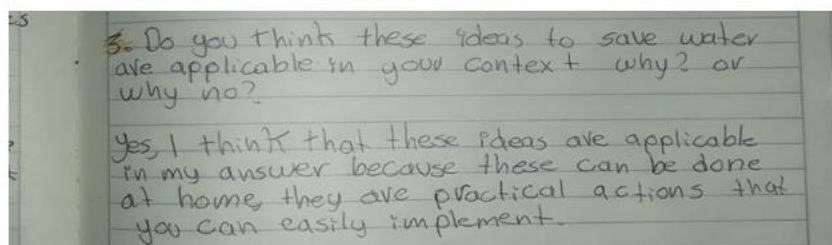 3. Do you think these ideas to save water
are applicable in your context why? or
why no?
yes, I think that these ideas are applicable
in my answer because these can be done
at home, they are practical actions that
you can easily implement.